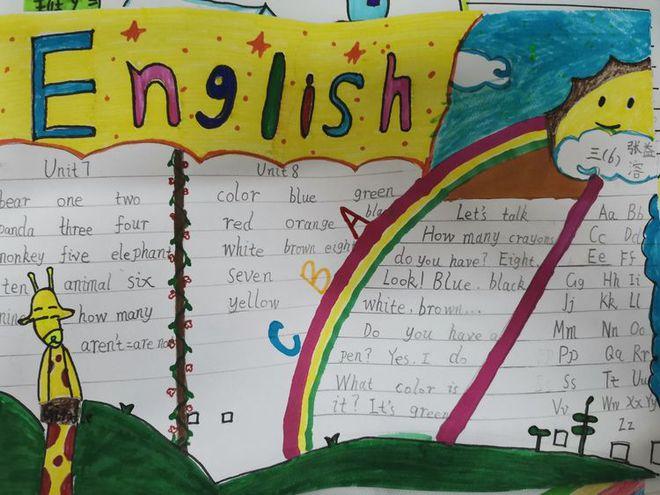 English
三(6) 张益
溶
Unit 7
bear one two
panda three four
monkey five elephant
ten animal six
nine how many
aren't=are not
Unit 8
color blue green
black
red orange
white brown eight
seven
yellow
A
B
C
Let's talk
How many crayons
do you have? Eight.
Look! Blue, black
white, brown...
Do you have a
pen? Yes, I do
What color is
it? It's green
Aa Bb
Cc Dd
Ee Ff
Gg Hh Ii
Jj Kk Ll
Mm Nn Oo
Pp Qq Rr
Ss Tt Uu
Vv Ww Xx Yy
Zz